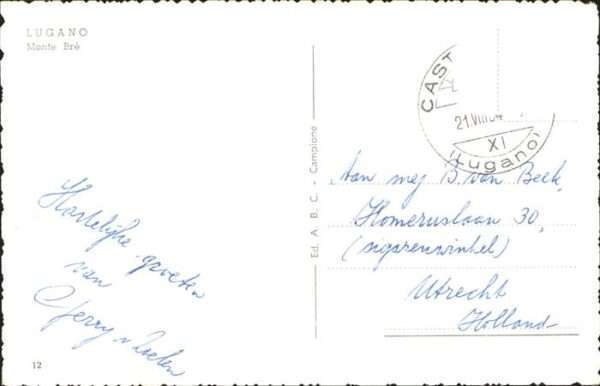 LUGANO
Monte Brè
Hartelijke groeten
van
Gerry v
12
Ed. A. B. C. - Campione
CAST
21.VIII
XI
(Lugano)
Aan mej B. van Beek,
Homeruslaan 30,
(sigarenwinkel)
Utrecht
Holland